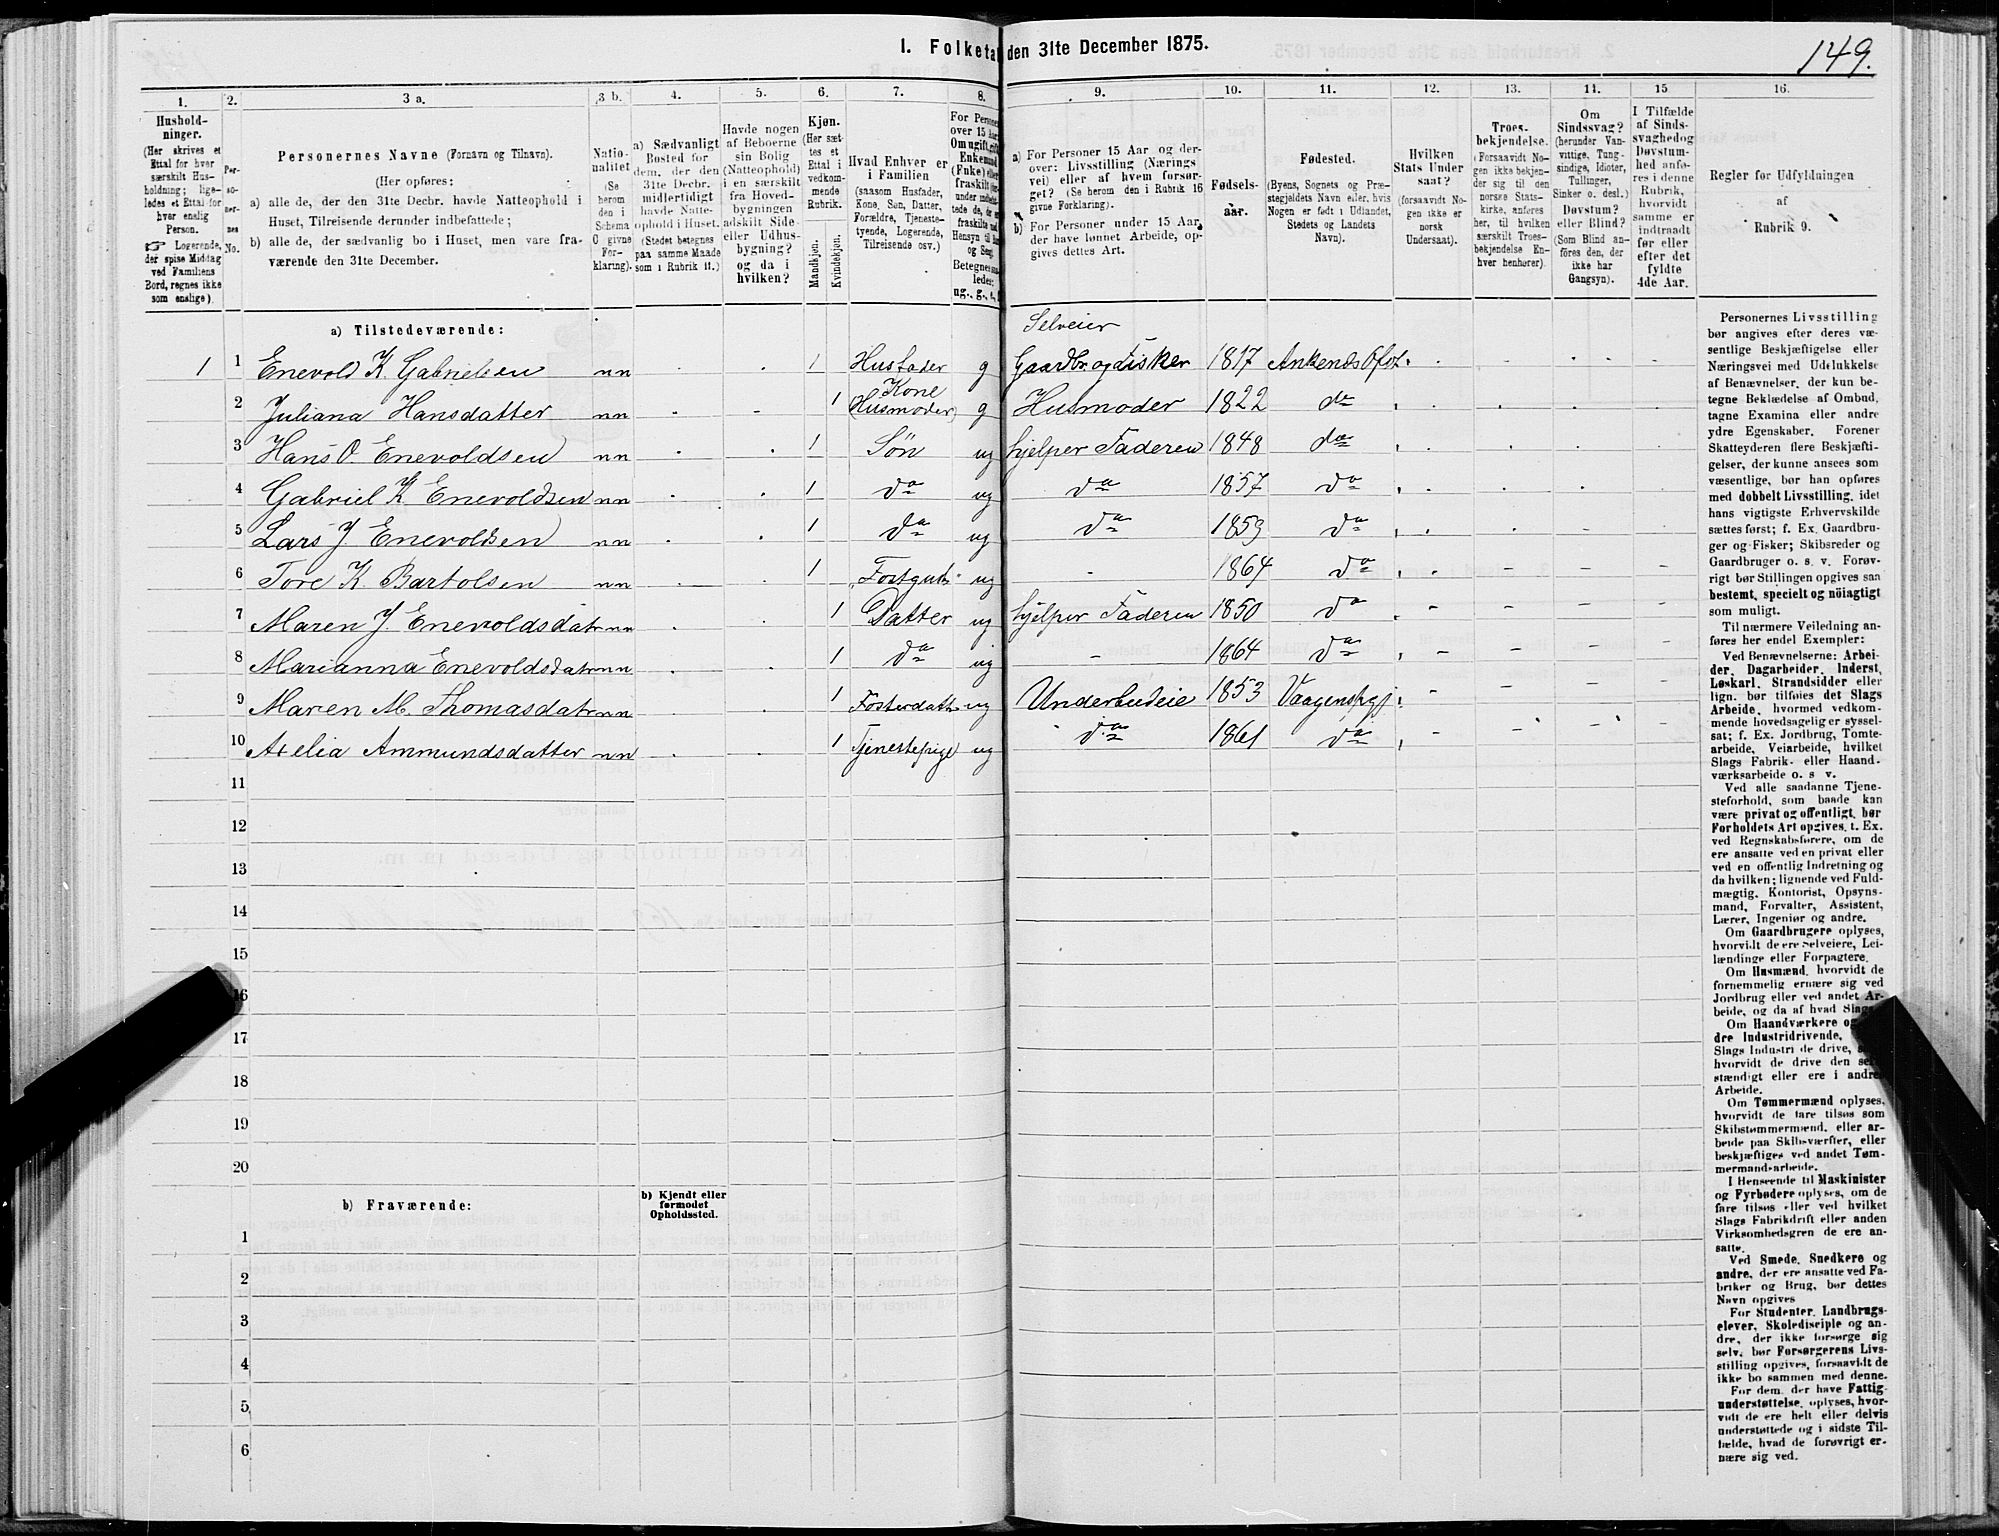 I. Folketa den 31te December 1875.
149.
1. 2. 3 a. 3 b. 4. 5. 6. 7. 8. 9. 10. 11. 12. 13. 14. 15 16.
Hushold-
ninger.
(Her skrives et
Ettal for hver
særskilt Hus-
holdning; lige-
ledes et Ettal for
hver enslig
Person.
Logerende,
der spise Middag
ved Familiens
Bord, regnes ikke
som enslige).
Per-
so-
ner-
nes
No.
Personernes Navne (Fornavn og Tilnavn).
(Her opføres:
a) alle de, der den 31te Decbr. havde Natteophold i
Huset, Tilreisende derunder indbefattede;
b) alle de, der sædvanlig bo i Huset, men vare fra-
værende den 31te December.
Natio-
nalitet
(Se
herom
den i
Schema
C givne
For-
klaring).
a) Sædvanligt
Bosted for
dem, der den
31te Decbr.
midlertidigt
havde Natte-
ophold i Huset.
(Stedet betegnes
paa samme Maade
som i Rubrik 11.)
Havde nogen
af Beboerne
sin Bolig
(Natteophold)
i en særskilt
fra Hoved-
bygningen
adskilt Side-
eller Udhus-
bygning?
og da i
hvilken?
Kjøn.
(Her sæt-
tes et
Ettal i
vedkom-
mende
Rubrik.
Mandkjøn.
Kvindekjøn.
Hvad Enhver er
i Familien
(saasom Husfader,
Kone, Søn, Datter,
Forældre, Tjeneste-
tyende, Logerende,
Tilreisende osv.)
For Persone
over 15 Aar
Om ugift, gift,
Enkemand
(Enke) eller
fraskilt
Betegnes
ledes:
ug., g., e.,
a) For Personer 15 Aar og der-
over: Livsstilling (Nærings
vei) eller af hvem forsør-
get? (Se herom den i Rubrik 16
givne Forklaring).
b) For Personer under 15 Aar,
der have lønnet Arbeide, op-
gives dettes Art.
Fødsels-
aar.
Fødested.
(Byens, Sognets og Præ-
stegjeldets Navn eller, hvis
Nogen er født i Udlandet,
Stedets og Landets
Navn).
Hvilken
Stats Under
saat?
(forsaavidt No-
gen ikke er
norsk
Undersaat).
Troes-
bekjendelse.
(Forsaavidt No-
gen ikke bekjen-
der sig til den
norske Stats-
kirke, anføres
her, til hvilken
særskilt Troes-
bekjendelse En-
hver henhører).
Om
Sindssvag?
(herunder Van-
vittige, Tung-
sindige, Idioter,
Tullinger,
Sinker o. desl.)
Døvstum?
eller Blind?
(Som Blind an-
føres den, der
ikke har
Gangsyn).
I Tilfælde
af Sinds-
svaghed og
Døvstum-
hed anfø-
res i denne
Rubrik,
hvorvidt
samme er
indtraadt
før eller
efter det
fyldte
4de Aar.
Regler for Udfyldningen
af
Rubrik 9.
a) Tilstedeværende:
Selveier
1 1 Enevold K. Gabrielsen nn 1 Husfader g Gaardbr og Fisker 1817 Ankenes Ofot.
Kone
2 Juliana Hansdatter nn 1 (Husmoder) g Husmoder 1822 do
3 Hans O. Enevoldsen nn 1 Søn ug hjelper Faderen 1848 do
4 Gabriel K Enevoldsen nn 1 do ug do 1857 do
5 Lars J Enevoldsen nn 1 do ug do 1859 do
6 Tore K. Bartolsen nn 1 ug - 1864 do
7 Maren J. Enevoldsdatr nn 1 Datter ug hjelper Faderen 1850 do
8 Marianna Enevoldsdatr nn 1 do ug - 1864 do
9 Maren M. Thomasdatr nn 1 Fosterdatt ug Underbudeie 1853
10 Ammundsdatter nn 1 Tjenestepige ug do 1861 do
11
12
13
14
15
16
17
18
19
20
b) Fraværende:
b) Kjendt eller
formodet
Opholdssted.
1
2
3
4
5
6
Personernes Livsstilling
bør angives efter deres væ-
sentlige Beskjæftigelse eller
Næringsvei med Udelukkelse
af Benævnelser, der kun be-
tegne Beklædelse af Ombud,
tagne Examina eller andre
ydre Egenskaber. Forener
Skatteyderen flere Beskjæfti-
gelser, der kunne ansees som
væsentlige, bør han opføres
med dobbelt Livsstilling, idet
hans vigtigste Erhvervskilde
sættes først; f. Ex. Gaardbru-
ger og Fisker; Skibsreder og
Gaardbruger o. s. v. Forøv-
rigt bør Stillingen opgives saa
bestemt, specielt og nöiagtigt
som muligt.
Til nærmere Veiledning an-
føres her endel Exempler:
Ved Benævnelserne: Arbei-
der, Dagarbeider, Inderst,
Løskarl, Strandsidder eller
lign. bør tilføies det Slags
Arbeide, hvormed vedkom-
mende hovedsagelig er syssel-
sat; f. Ex. Jordbrug, Tomte-
arbeide, Veiarbeide, hvilket
Slags Fabrik- eller Haand-
værksarbeide o. s v.
Ved alle saadanne Tjene-
steforhold, som baade kan
være privat og offentligt, bør
Forholdets Art opgives, t. Ex.
ved Regnskabsførere, om de
ere ansatte ved en privat eller
ved en offentlig Indretning og
da hvilken; lignende ved Fuld-
mægtig, Kontorist, Opsyns-
mand, Forvalter, Assistent,
Lærer, Ingeniør og andre.
Om Gaardbrugere oplyses,
hvorvidt de ere Selveiere, Lei-
lændinge eller Forpagtere.
Om Husmænd, hvorvidt de
fornemmelig ernære sig ved
Jordbrug eller ved andet Ar-
beide, og da af hvad Slags
Om Haandværkere og
dre Industridrivende,
Slags Industri de drive,
hvorvidt de drive den sel
stændigt eller ere i andre
Arbeide.
Om Tømmermænd oplyses,
hvorvidt de fare tilsøs som
Skibstømmermænd, eller ar-
beide paa Skibsværfter, eller
beskjæftiges ved andet Tøm-
mermandsarbeide.
I Henseende til Maskinister
og Fyrbødere oplyses, om de
fare tilsøs eller ved hvilket
Slags Fabrikdrift eller anden
Virksomhedsgren de ere an-
satte.
Ved Smede, Snedkere og
andre, der ere ansatte ved Fa-
briker og Brug, bør dettes
Navn opgives
For Studenter, Landbrugs-
elever, Skoledisciple og an-
dre, der ikke forsørge sig
selv, bør Forsørgerens Livs-
stilling opgives, forsaavidt de
ikke bo sammen med denne.
For dem, der have Fattig-
understøttelse, oplyses, hvor-
vidt de ere helt eller delvis
understøttede og i sidste Til-
fælde, hvad de forøvrigt er-
nære sig ved.